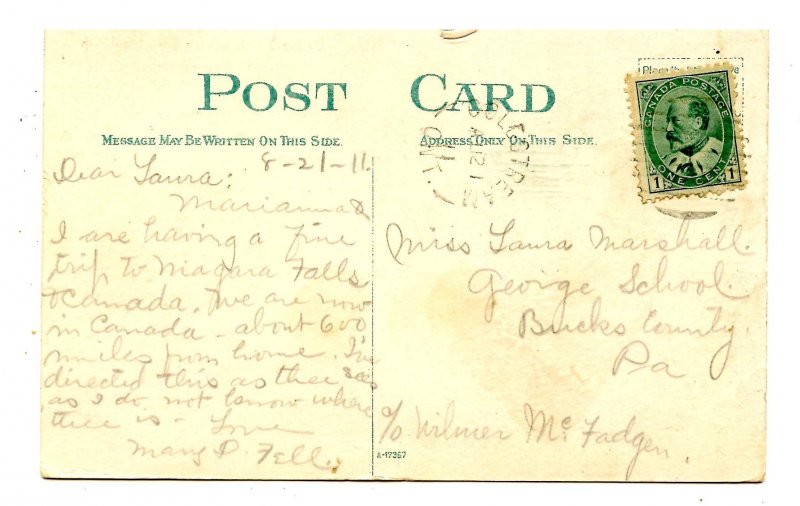 POST CARD
MESSAGE MAY BE WRITTEN ON THIS SIDE.
ADDRESS ONLY ON THIS SIDE.
Place the
CANADA POSTAGE
1 ONE CENT 1
COLESTREAM
AU 21
AM
8-21-11
Dear Laura:
Marianna &
I are having a fine
trip to Niagara Falls
& Canada. We are now
in Canada - about 600
miles from home. I've
directed this as thee says
as I do not know where
thee is - Love
Mary P. Fell.
Miss Laura Marshall.
George School.
Bucks County.
Pa
c/o Wilmer McFadgen.
A-17367